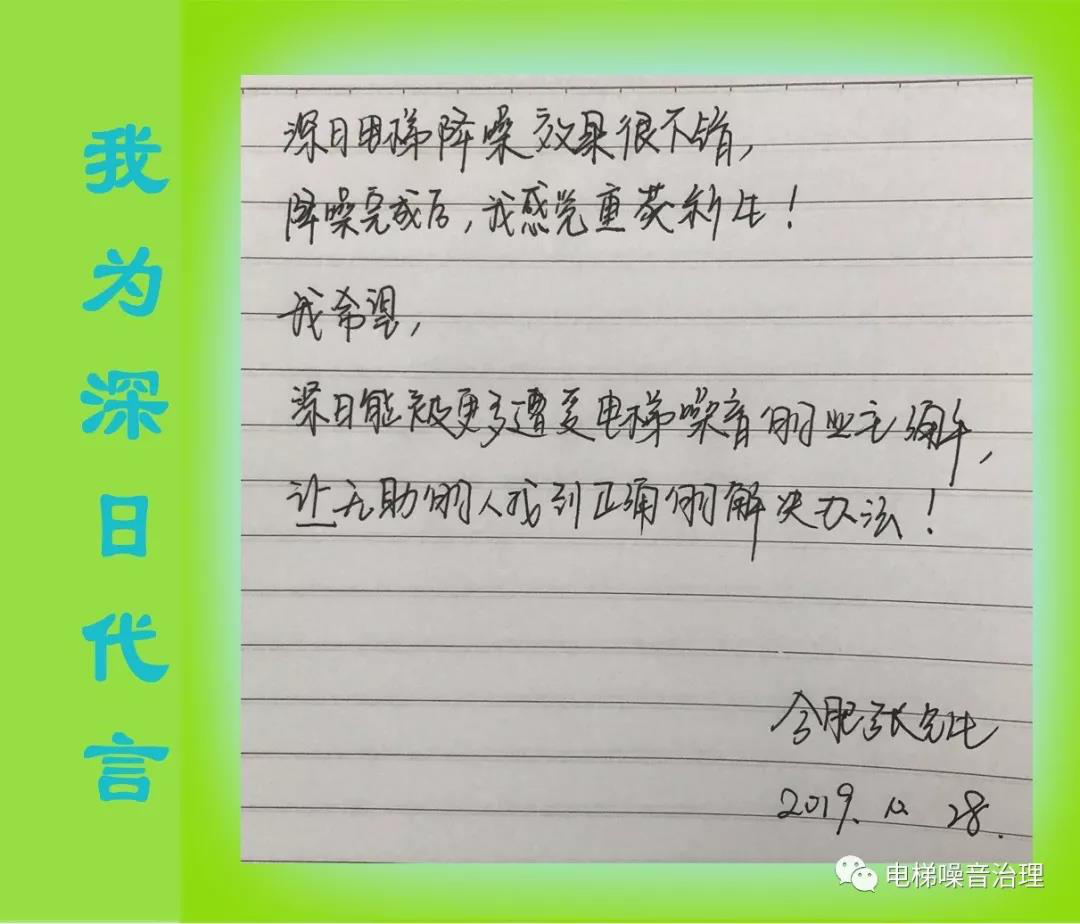 我为深日代言
深日电梯降噪效果很不错,
降噪完成后,我感觉重获新生!
我希望,
深日能被更多遭受电梯噪音的业主知晓,
让无助的人找到正确的解决办法!
合肥张先生
2019. 28.
电梯噪音治理